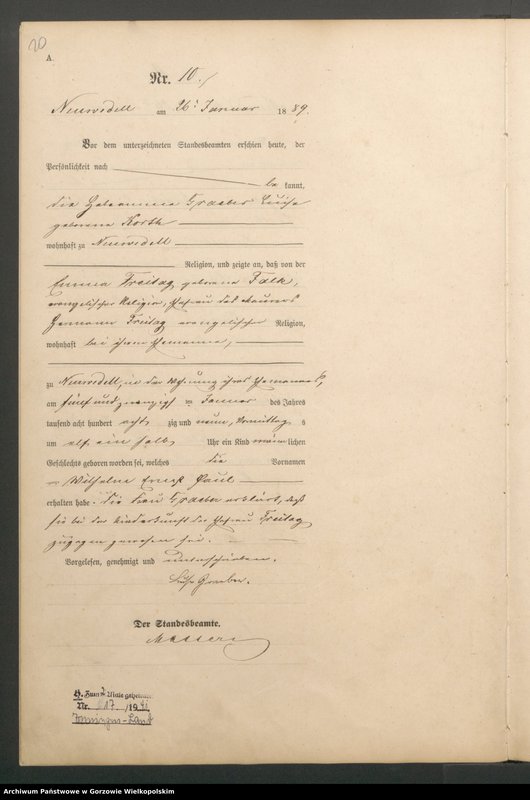 20
A.
Nr. 10.
Neuwedell am 26t Januar 1889.
Vor dem unterzeichneten Standesbeamten erschien heute, der
Persönlichkeit nach
be kannt,
die Hebeamme Graeber Luise
geborene Korth
wohnhaft zu Neuwedell
Religion, und zeigte an, daß von der
Emma Freitag geborene Falk,
evangelischer Religion, Ehefrau des Maurers
Hermann Freitag evangelischer Religion,
wohnhaft bei ihrem Ehemanne,
zu Neuwedell, in der Wohnung ihres Ehemannes,
am fünf und zwanzigsten Januar des Jahres
tausend acht hundert acht zig und neun, Vormittag s
um elf ein halb Uhr ein Kind männ lichen
Geschlechts geboren worden sei, welches die Vornamen
Wilhelm Ernst Paul
erhalten habe. Die Frau Graeber erklärt, daß
sie bei der Niederkunft der Ehefrau Freitag
zugegen gewesen sei.
Vorgelesen, genehmigt und unterschrieben.
Luise Graeber.
Der Standesbeamte.
Zum Male geheiratet
Nr. 117 /19
Land
Archiwum Państwowe w Gorzowie Wielkopolskim